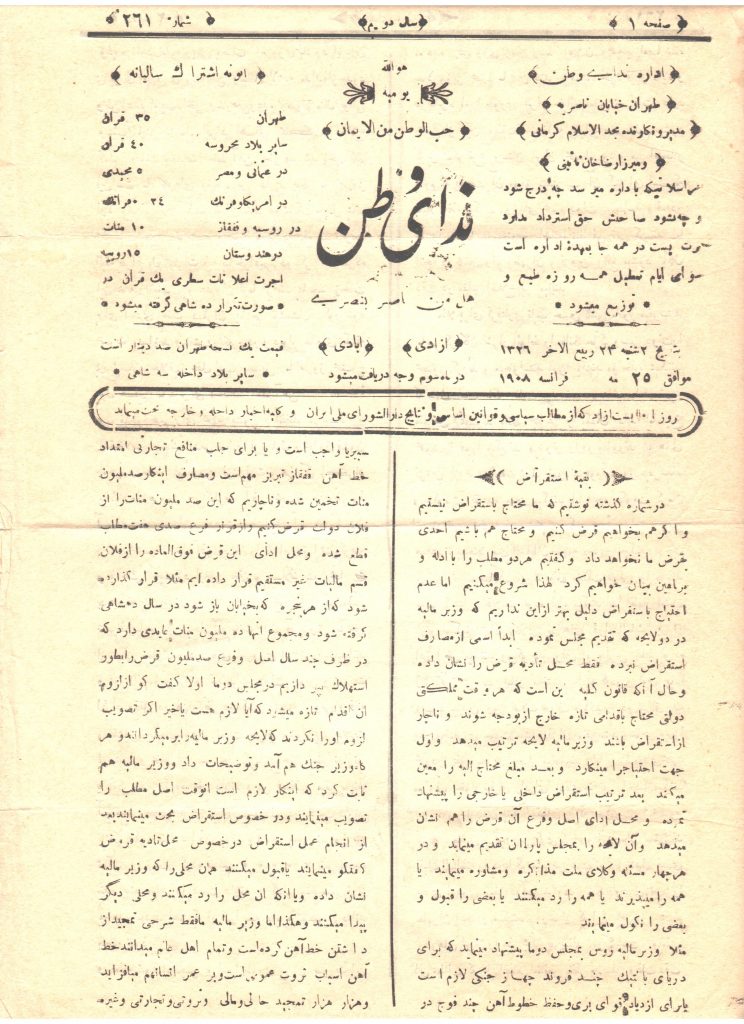 صفحه ۱
سال دویم
شماره ۲۶۱
اداره ندای وطن
طهران خیابان ناصریه
مدیر و نگارنده مجد الاسلام کرمانی
و میرزا رضا خان نائینی
مراسلاتیکه باداره میرسد چه درج شود
و چه نشود صاحبش حق استرداد ندارد
اجرت پست در همه جا بعهدهٔ اداره است
سوای ایام تعطیل همه روزه طبع و
توزیع میشود
بتاریخ ۲ شنبه ۲۳ ربیع الاخر ۱۳۲۶
موافق ۲۵ مه فرانسه ۱۹۰۸
هو الله
یومیه
حب الوطن من الایمان
ندای وطن
هل من ناصر ینصرنی
ازادی ابادی
در ماه سوم وجه دریافت میشود
ابونه اشتراک سالیانه
طهران ۳۵ قران
سایر بلاد محروسه ۴۰ قران
در عثمانی و مصر ۵ مجیدی
در امریکا و فرنک ۲۴ فرانک
در روسیه و قفقاز ۱۰ منات
در هندوستان ۱۵ روپیه
اجرت اعلانات سطری یک قران در
صورت تکرار ده شاهی گرفته میشود
قیمت یک نسخه طهران صد دینار است
سایر بلاد داخله سه شاهی
روزنامه ایست ازاد که از مطالب سیاسی و قوانین اساسی و نتایج دار الشورای ملی ایران و کلیه اخبار داخله و خارجه بحث مینماید
بقیهٔ استقراض
در شماره گذشته نوشتیم که ما محتاج باستقراض نیستیم
و اکر هم بخواهیم قرض کنیم و محتاج هم باشیم احدی
بقرض ما نخواهد داد و گفتیم هر دو مطلب را با ادله و
براهین بیان خواهیم کرد لهذا شروع میکنیم اما عدم
احتیاج باستقراض دلیل بهتر از این نداریم که وزیر مالیه
در دو لایحه که تقدیم مجلس نموده ابداً اسمی از مصارف
استقراض نبرده فقط محل تأدیه قرض را نشان داده
و حال آنکه قانون کلیه این است که هر وقت مملکتی
دولتی محتاج باقدامی تازه خارج از بودجه شوند و ناچار
از استقراض باشند وزیر مالیه لایحه ترتیب میدهد و اول
جهت احتیاج را مینکارد و بعد مبلغ محتاج الیه را معین
میکند بعد ترتیب استقراض داخلی یا خارجی را پیشنهاد
نموده و محل ادای اصل و فرع آن قرض را هم نشان
میدهد و آن لایحه را بمجلس پارلمان تقدیم مینماید و در
هر چهار مسئله وکلای ملت مذاکره و مشاوره مینمایند یا
همه را میپذیرند یا همه را رد میکنند یا بعضی را قبول و
بعضی را نکول مینمایند
مثلا وزیر مالیه روس بمجلس دوما پیشنهاد مینماید که برای
دریای بالتیک چند فروند جهاز جنکی لازم است
یا برای ازدیاد قوای بری و حفظ خطوط آهن چند فوج در
سیبریا واجب است و یا برای جلب منافع تجارتی امتداد
خط آهن قفقاز تبریز مهم است و مصارف اینکار صد ملیون
منات تخمین شده و ناچاریم که این صد ملیون منات را از
فلان دولت قرض کنیم و از قرار فرع صدی هفت مطلب
قطع شده و محل ادای این قرض فوق العاده را از فلان
قسم مالیات غیر مستقیم قرار داده ایم مثلا قرار گذارده
شود که از هر پنجره که بخیابان باز شود در سال ده شاهی
گرفته شود و مجموع انها ده ملیون منات عایدی دارد که
در ظرف چند سال اصل و فرع صد ملیون قرض را بطور
استهلاک بپردازیم در مجلس دوما اولا گفت کو از لزوم
ان اقدام تازه میشود که آیا لازم هست یا خیر اکر تصویب
لزوم او را نکردند که لایحه وزیر مالیه را بر میگردانند و هر
گاه وزیر جنک هم آمد و توضیحات داد و وزیر مالیه هم
ثابت کرد که اینکار لازم است انوقت اصل مطلب را
تصویب مینمایند و در خصوص استقراض بحث مینمایند بعد
از انجام عمل استقراض در خصوص محل تادیه قروض
گفتگو مینمایند یا قبول میکنند همان محلی را که وزیر مالیه
نشان داده و یا انکه ان محل را رد میکنند و محلی دیگر
پیدا میکنند و هکذا اما وزیر مالیه ما فقط شرحی تمجید از
داشتن خط آهن کرده است و تمام اهل عالم میدانند خط
آهن اسباب ثروت عمومی است و بر عمر انسان هم میافزاید
و هزار هزار تمجید حالی و مالی و ثروتی و تجارتی و غیره